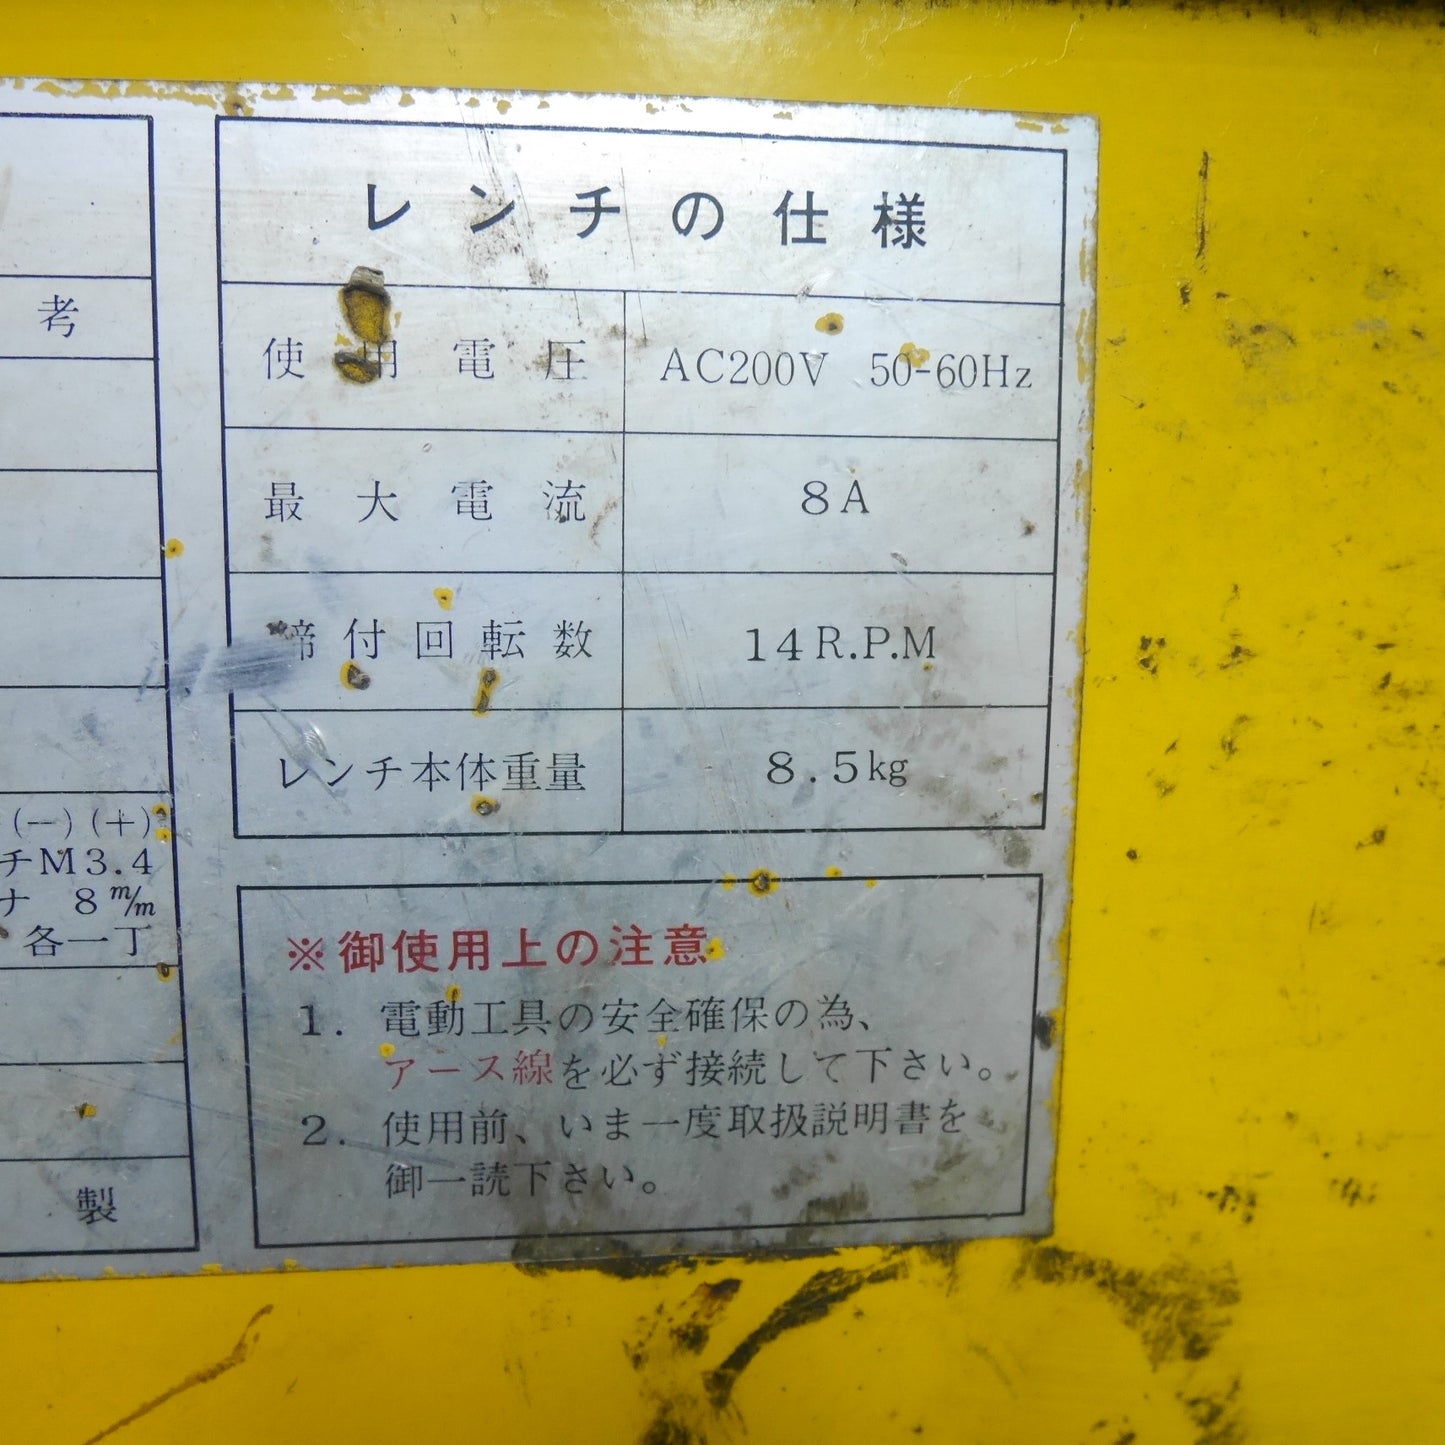 考
(一)(十)
チM3.4
ナ 8 m/m
各一丁
製
レンチの仕様
使用電圧 AC200V 50-60Hz
最大電流 8A
締付回転数 14R.P.M
レンチ本体重量 8.5kg
※御使用上の注意
1. 電動工具の安全確保の為、
アース線を必ず接続して下さい。
2. 使用前、いま一度取扱説明書を
御一読下さい。